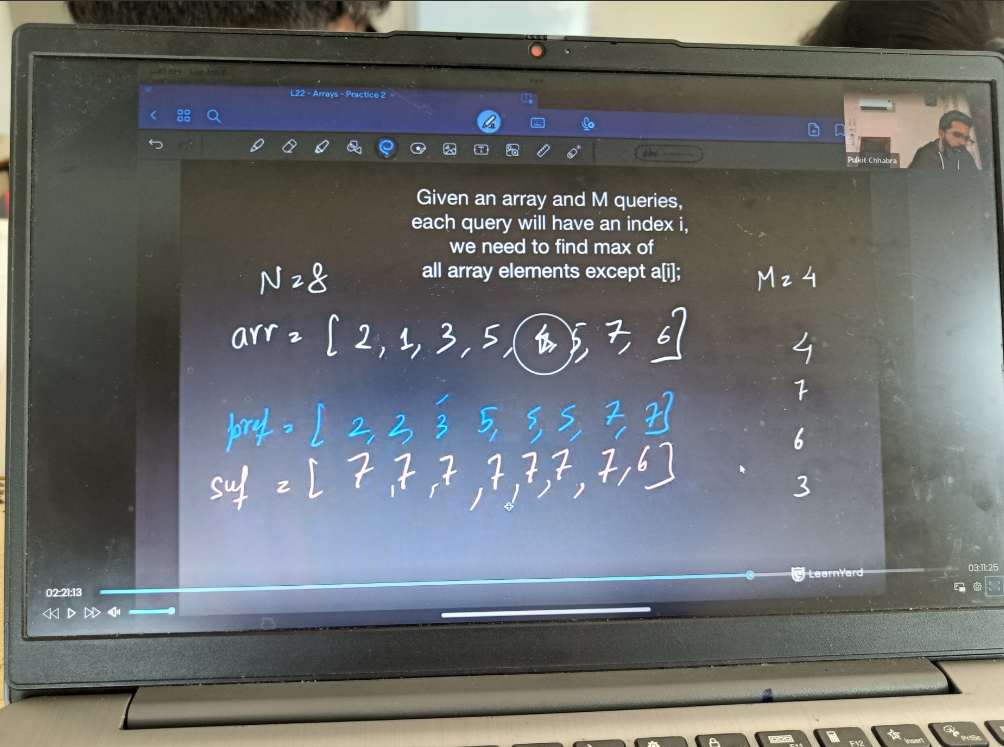 L22 - Arrays - Practice 2
Pulkit Chhabra
Given an array and M queries,
each query will have an index i,
we need to find max of
all array elements except a[i];
N = 8
M = 4
arr = [ 2, 1, 3, 5, 5, 7, 6 ]
4
7
pref = [ 2, 2, 3 5, 5, 5, 7, 7 ]
6
suf = [ 7, 7, 7, 7, 7, 7, 7, 6 ]
3
LearnYard
02:21:13
03:11:25
F11
F12
Insert
PrtSc